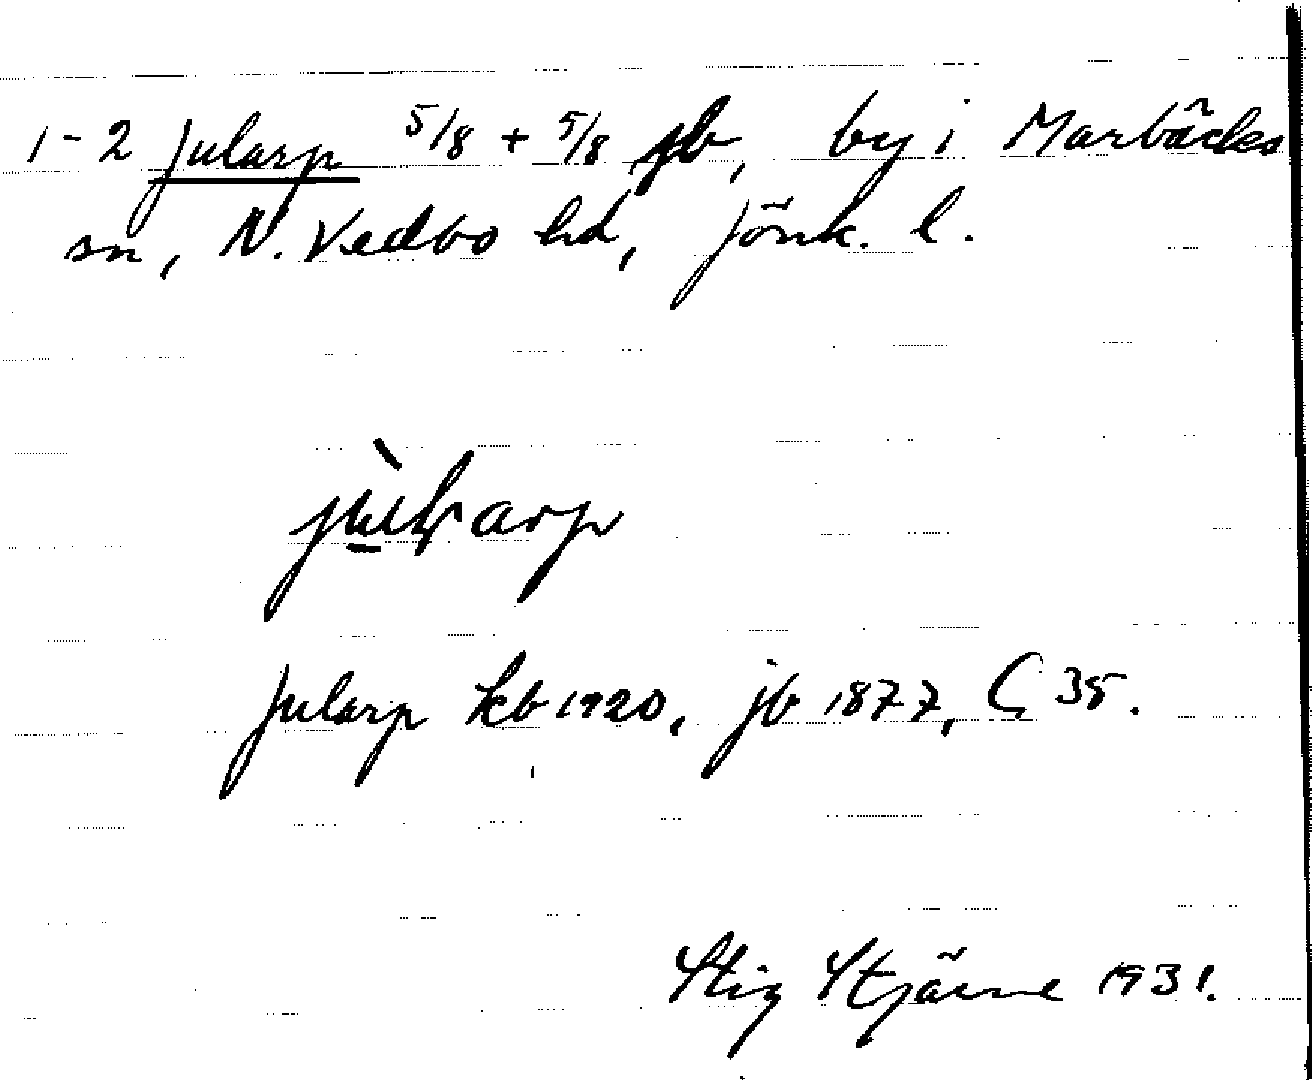 1-2 Jularp 5/8 + 5/8 jb, by i Marbäcks
sn, N. Vedbo hd, Jönk. l.
Jularp kb 1920, jb 1877, C 35.
Stig Stjärne 1931.